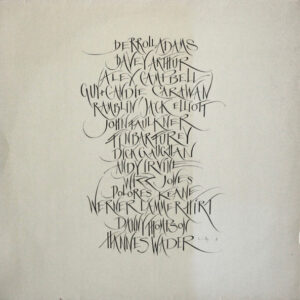 DERROLL ADAMS
DAVEY ARTHUR
ALEX CAMPBELL
GUY + CANDIE CARAWAN
RAMBLIN' JACK ELLIOTT
JOHN FAULKNER
FINBAR FUREY
DICK GAUGHAN
ANDY IRVINE
WIZZ JONES
DOLORES KEANE
WERNER LÄMMERHIRT
DANNY THOMPSON
HANNES WADER